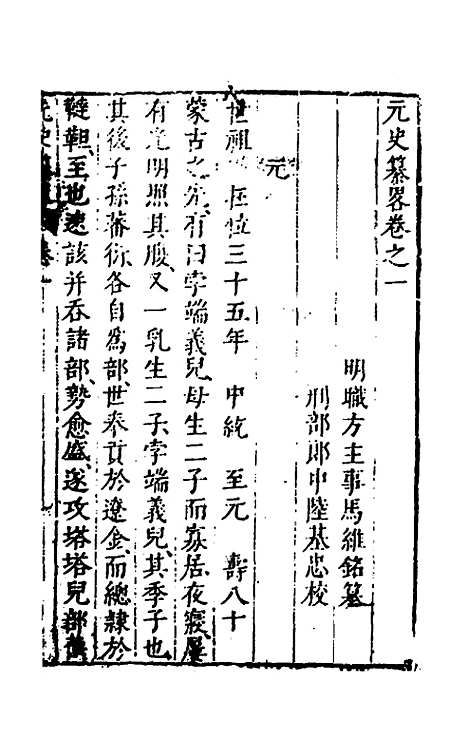 元史纂畧卷之一
明職方主事馬維銘纂
刑部郎中陸基忠校
元
世祖 在位三十五年 中統 至元 壽八十
蒙古之先有曰孛端義兒母生二子而寡居夜寢屢
有光明照其腹又一乳生二子孛端義兒其季子也
其後子孫蕃衍各自爲部世奉貢於遼金而總隷於
韃靼至也速該并吞諸部勢愈盛遂攻塔塔兒部獲